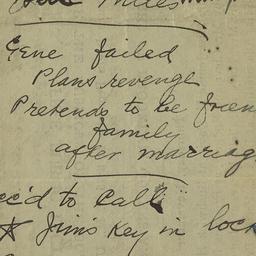 Gene failed
Plans revenge
Pretends to be frien
family
after marriag
c'd to Call
Jim's Key in lock